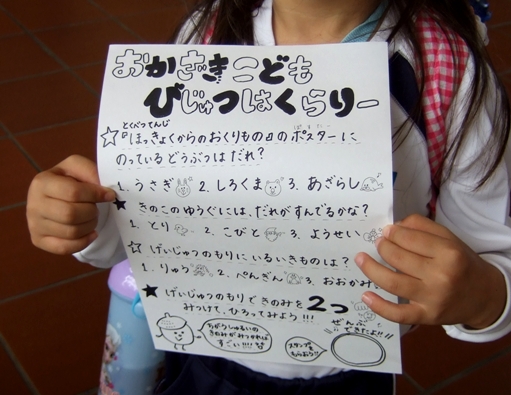 おかざきこども
びじゅつはくらりー
とくべつてんじ
☆『ほっきょくからのおくりもの』のポスターに
のっているどうぶつはだれ？
1. うさぎ 2. しろくま 3. あざらし
★きのこのゆうぐには、だれがすんでるかな？
1. とり 2. こびと 3. ようせい
☆げいじゅつのもりにいるいきものは？
1. りゅう 2. ぺんぎん 3. おおかみ
★げいじゅつのもりできのみを2つ
みつけて、ひろってみよう!!!
ちがうしゅるいの
きのみがみつかれば
すごい!!!!
スタンプを
もらおう!!
ぜんぶ
できたよ!!